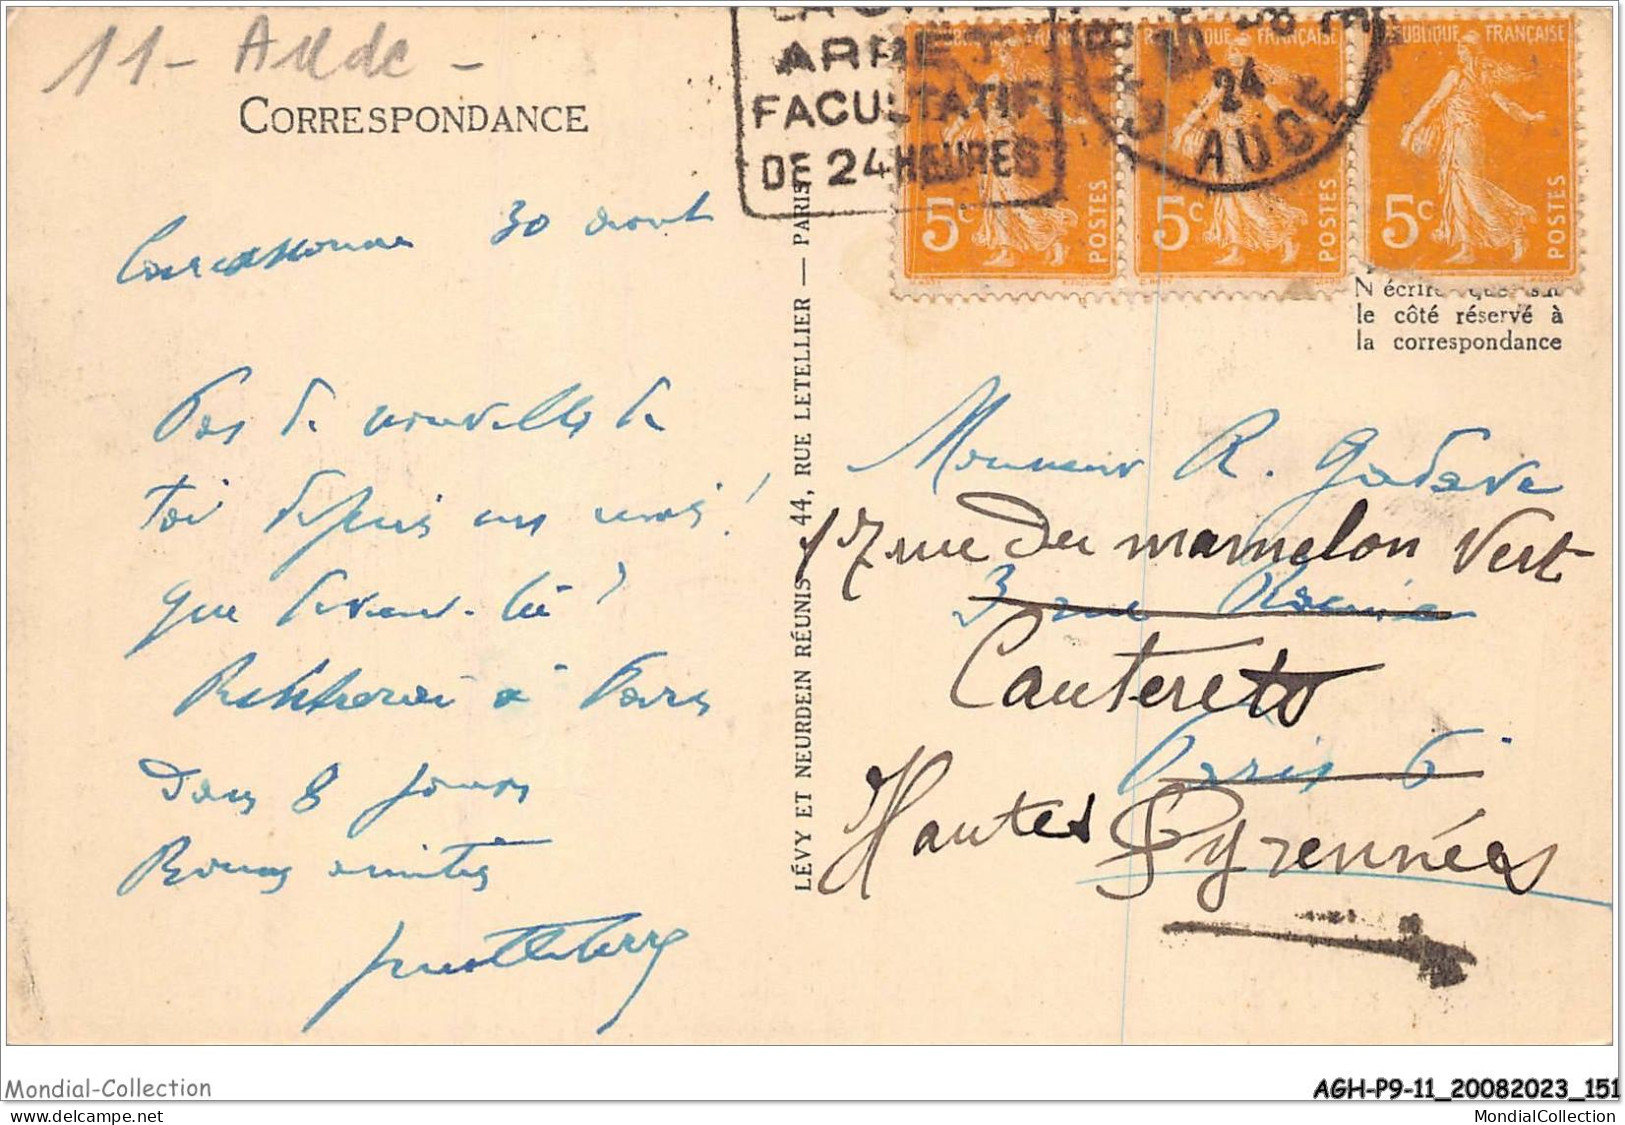 11 - Aude -
CORRESPONDANCE
ARRET
FACULTATIF
DE 24 HEURES
30 - 8
24
AUDE
REPUBLIQUE FRANÇAISE
5c POSTES
REPUBLIQUE FRANÇAISE
5c POSTES
REPUBLIQUE FRANÇAISE
5c POSTES
N'écrire que sur
le côté réservé à
la correspondance
Carcassonne 30 août
Pas de nouvelles de
toi depuis un mois !
que deviens-tu ?
Rentrerai à Paris
dans 8 jours
Bonnes amitiés
LÉVY ET NEURDEIN RÉUNIS 44, RUE LETELLIER — PARIS
Monsieur R. Gadave
17 rue du mamelon Vert
3 rue Racine
Cauterets
Paris 6e
Hautes Pyrennées
Mondial-Collection
AGH-P9-11_20082023_151
www.delcampe.net
MondialCollection